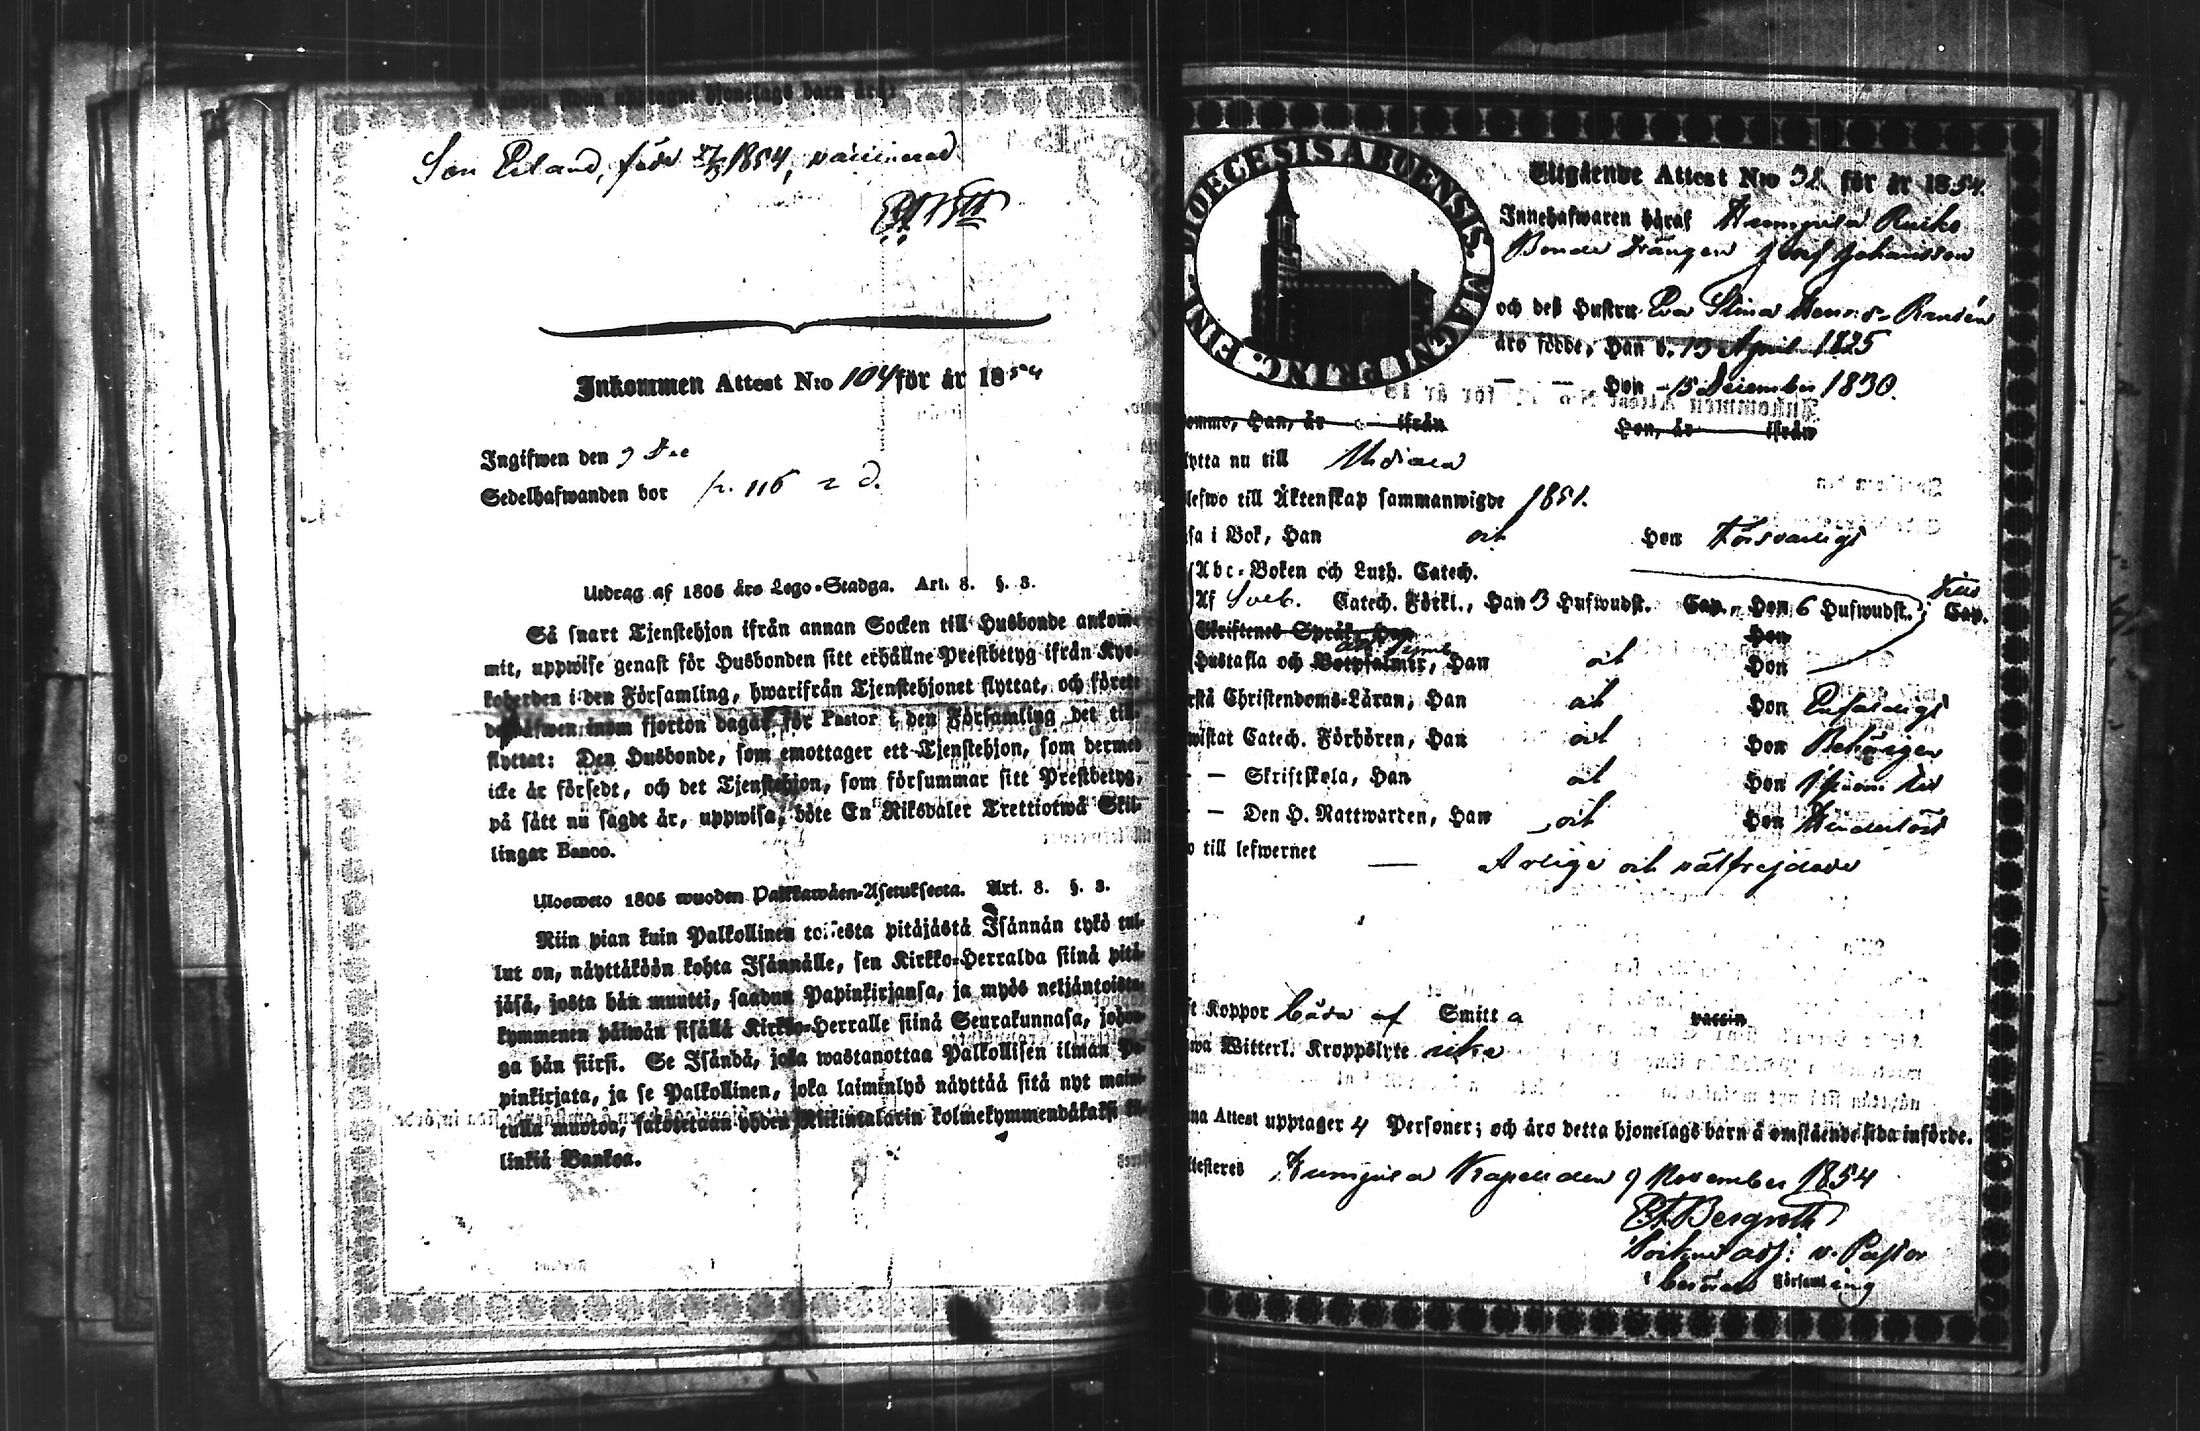 Son Erland, född 1854, vaccinerad
Inkommen Attest N:o 104 för år 1854
Ingifwen den 9 Dec
Sedelhafwanden bor p. 116 2 d.
Utdrag af 1805 års Lego-Stadga. Art. 8. §. 3.
Så snart Tjenstehjon ifrån annan Socken till Husbonde ankom-
mit, uppwise genast för Husbonden sitt erhållne Prestbetyg ifrån Kyr-
koherden i den Församling, hwarifrån Tjenstehjonet flyttat, och före
inom fjorton dagar för Pastor i den Församling det till-
flyttat: Den Husbonde, som emottager ett Tjenstehjon, som dermed
icke är försedt, och det Tjenstehjon, som försummar sitt Prestbetyg,
på sätt nu sagdt är, uppwisa, böte En Riksdaler Trettiotwå Skil-
lingar Banco.
Ulosweto 1805 wuoden Palkkawäen-Asetuksesta. Art. 8. §. 3.
Niin pian kuin Palkollinen toisesta pitäjästä Isännän tykö tul-
lut on, näyttäköön kohta Isännälle, sen Kirkko-Herralda siinä pitä-
jäsä, josta hän muutti, saadun Papinkirjansa, ja myös neljäntoista-
kymmenen päiwän sisällä Kirkko-Herralle siinä Seurakunnasa, johon-
ga hän siirsi. Se Isändä, joka wastanottaa Palkollisen ilman Pa-
pinkirjata, ja se Palkollinen, joka laiminlyö näyttää sitä nyt maini-
tulla muotoa, sakotetaan yhden Riikintalarin kolmekymmendäkaksi
linkiä Bankoa.
DIOECESIS ABOENSIS. MAGNI PRINC. FINL.
Utgående Attest N:o 32 för år 1854.
Innehafwaren häraf Kumpula Ruiko
Bonde Drängen Josef Johansson
och dess Hustru Eva Stina Henr:s Randén
äro födde, Han d. 13 April 1825
— — Hon — 15 December 1830.
komne, Han, år ifrån Hon, år ifrån
flytta nu till
lefwo till Äktenskap sammanwigde 1851.
läsa i Bok, Han och Hon Försvarligt
Abc-Boken och Luth. Catech.
Af Sveb. Catech. Förkl., Han 3 Hufwudst. Cap., Hon 6 Hufwudst. Cap.
Skriftenes Språk, Han Hon
Hustafla och Botpsalmer, Han och Hon
förstå Christendoms-Läran, Han och Hon Enfaldigt
bewistat Catech. Förhören, Han och Hon Behörigen
— — Skriftskola, Han och Hon
— — Den H. Nattwarden, Han och Hon Hinderlöst
till lefwernet — Ärlige och välfrejdade
haft Koppor båda af Smitta vaccin
Witterl. Kroppslyte icke
Denna Attest upptager 4 Personer; och äro detta hjonelags barn å omstående sida införde.
Attesteres Kumpula Kapell den 9 November 1854
Bergroth
Sockne adj: v. Pastor
i berörde Församling